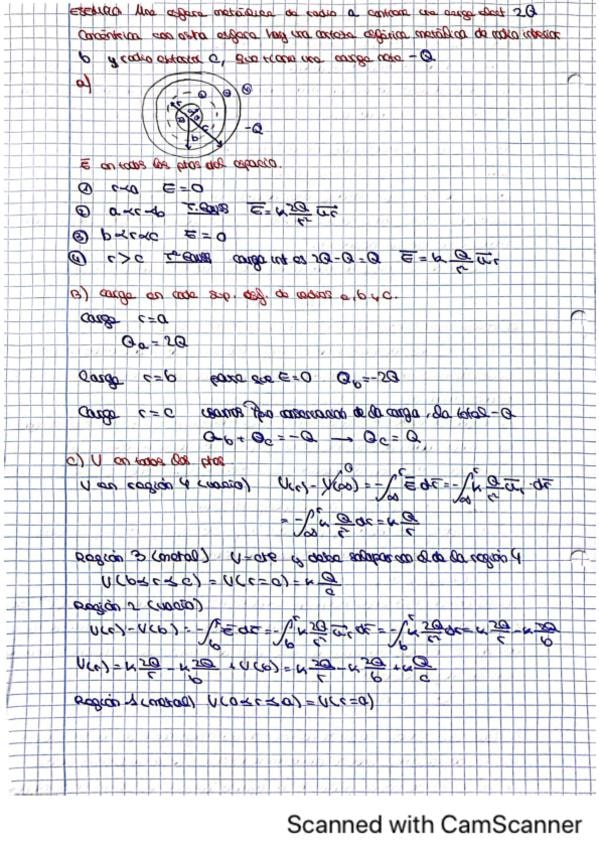 ESFERA Una esfera metálica de radio a contiene una carga elect 2Q
Concéntrica con esta esfera hay una corteza esférica metálica de radio interior
b y radio exterior c, que tiene una carga neta -Q
a)
-Q
E en todos los ptos del espacio.
① r<a E=0
② a<r<b Tª Gauss E=k 2Q/r² ur
③ b<r<c E=0
④ r>c Tª Gauss carga int es 2Q-Q=Q E=k Q/r² ur
B) carga en cada sup. esf. de radios a, b y c.
Carga r=a
Qa=2Q
Carga r=b para que E=0 Qb=-2Q
Carga r=c conservacion de la carga, la total -Q
Qb+Qc=-Q → Qc=Q
C) V en todos los ptos
V en región 4 (vacio) V(r)-V(∞)=-∫∞^r E dr=-∫∞^r k Q/r² ur·dr
=-∫∞^r k Q/r² dr=k Q/r
Región 3 (metal) V=cte y debe solapar con el de la región 4
V(b≤r≤c)=V(r=c)=k Q/c
Región 2 (vacio)
V(r)-V(b)=-∫b^r E dr=-∫b^r k 2Q/r² ur dr=-∫b^r k 2Q/r² dr=k 2Q/r-k 2Q/b
V(r)=k 2Q/r-k 2Q/b+V(b)=k 2Q/r-k 2Q/b+k Q/c
Región 1 (metal) V(0≤r≤a)=V(r=a)
Scanned with CamScanner